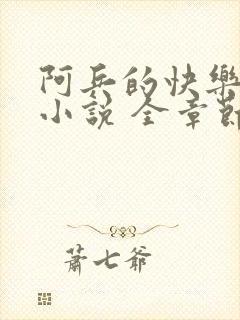 阿兵的快樂
小說 全章節
蕭七爺